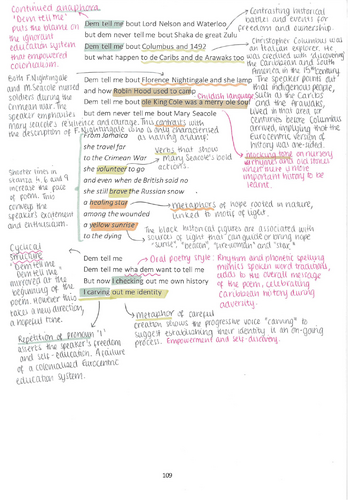 Continued anaphora
"Dem tell me"
puts the blame on
the ignorant
education system
that empowered
colonialism.
Both F.Nightingale
and M.Seacole nursed
soldiers during the
Crimean war. The
speaker emphasises
Mary Seacole's resilience and courage. This contrasts with
the description of F.Nightingale who is only characterised
as having a lamp.
Shorter lines in
stanza 4, 6 and 9
increase the pace
of poem. This
conveys the
speaker's excitement
and enthusiasm.
Cyclical
structure
"Dem tell me
Dem tell me"
mirrored at the
beginning of the
poem. However this
takes a new direction,
a hopeful tone.
Repetition of pronoun 'I'
asserts the speaker's freedom
and self-education. A failure
of a colonialised Eurocentric
education system.
Dem tell me bout Lord Nelson and Waterloo
but dem never tell me bout Shaka de great Zulu
Dem tell me bout Columbus and 1492
but what happen to de Caribs and de Arawaks too
Dem tell me bout Florence Nightingale and she lamp
and how Robin Hood used to camp
Dem tell me bout ole King Cole was a merry ole soul
but dem never tell me bout Mary Seacole
From Jamaica
she travel far
to the Crimean War
she volunteer to go
and even when de British said no
she still brave the Russian snow
a healing star
among the wounded
a yellow sunrise
to the dying
Dem tell me
Dem tell me wha dem want to tell me
But now I checking out me own history
I carving out me identity
Contrasting historical
battles and events for
freedom and ownership.
Christopher Columbus was
an Italian explorer. He
was credited with 'discovering'
the Caribbean and South
America in the 15th century.
The speaker points out
that indigenous people,
such as the Caribs
and the Arawaks,
lived in that area for
centuries before Columbus
arrived, implying that the
Eurocentric version of
history was one-sided.
Childish language
Mocking tone on nursery
rhymes and old stories
when there is more
important history to be
learnt.
Verbs that show
Mary Seacole's bold
actions.
metaphors of hope rooted in nature,
linked to motif of light.
The black historical figures are associated with
sources of light that can guide or bring hope
"sunrise", "beacon", "firewoman" and "star."
Oral poetry style. Rhythm and phonetic spelling
mimics spoken word traditions,
adds to the overall message
of the poem, celebrating
Caribbean history during
adversity.
metaphor of careful
creation shows the progressive voice "carving" to
suggest establishing their identity is an on-going
process. Empowerment and self-discovery.
109